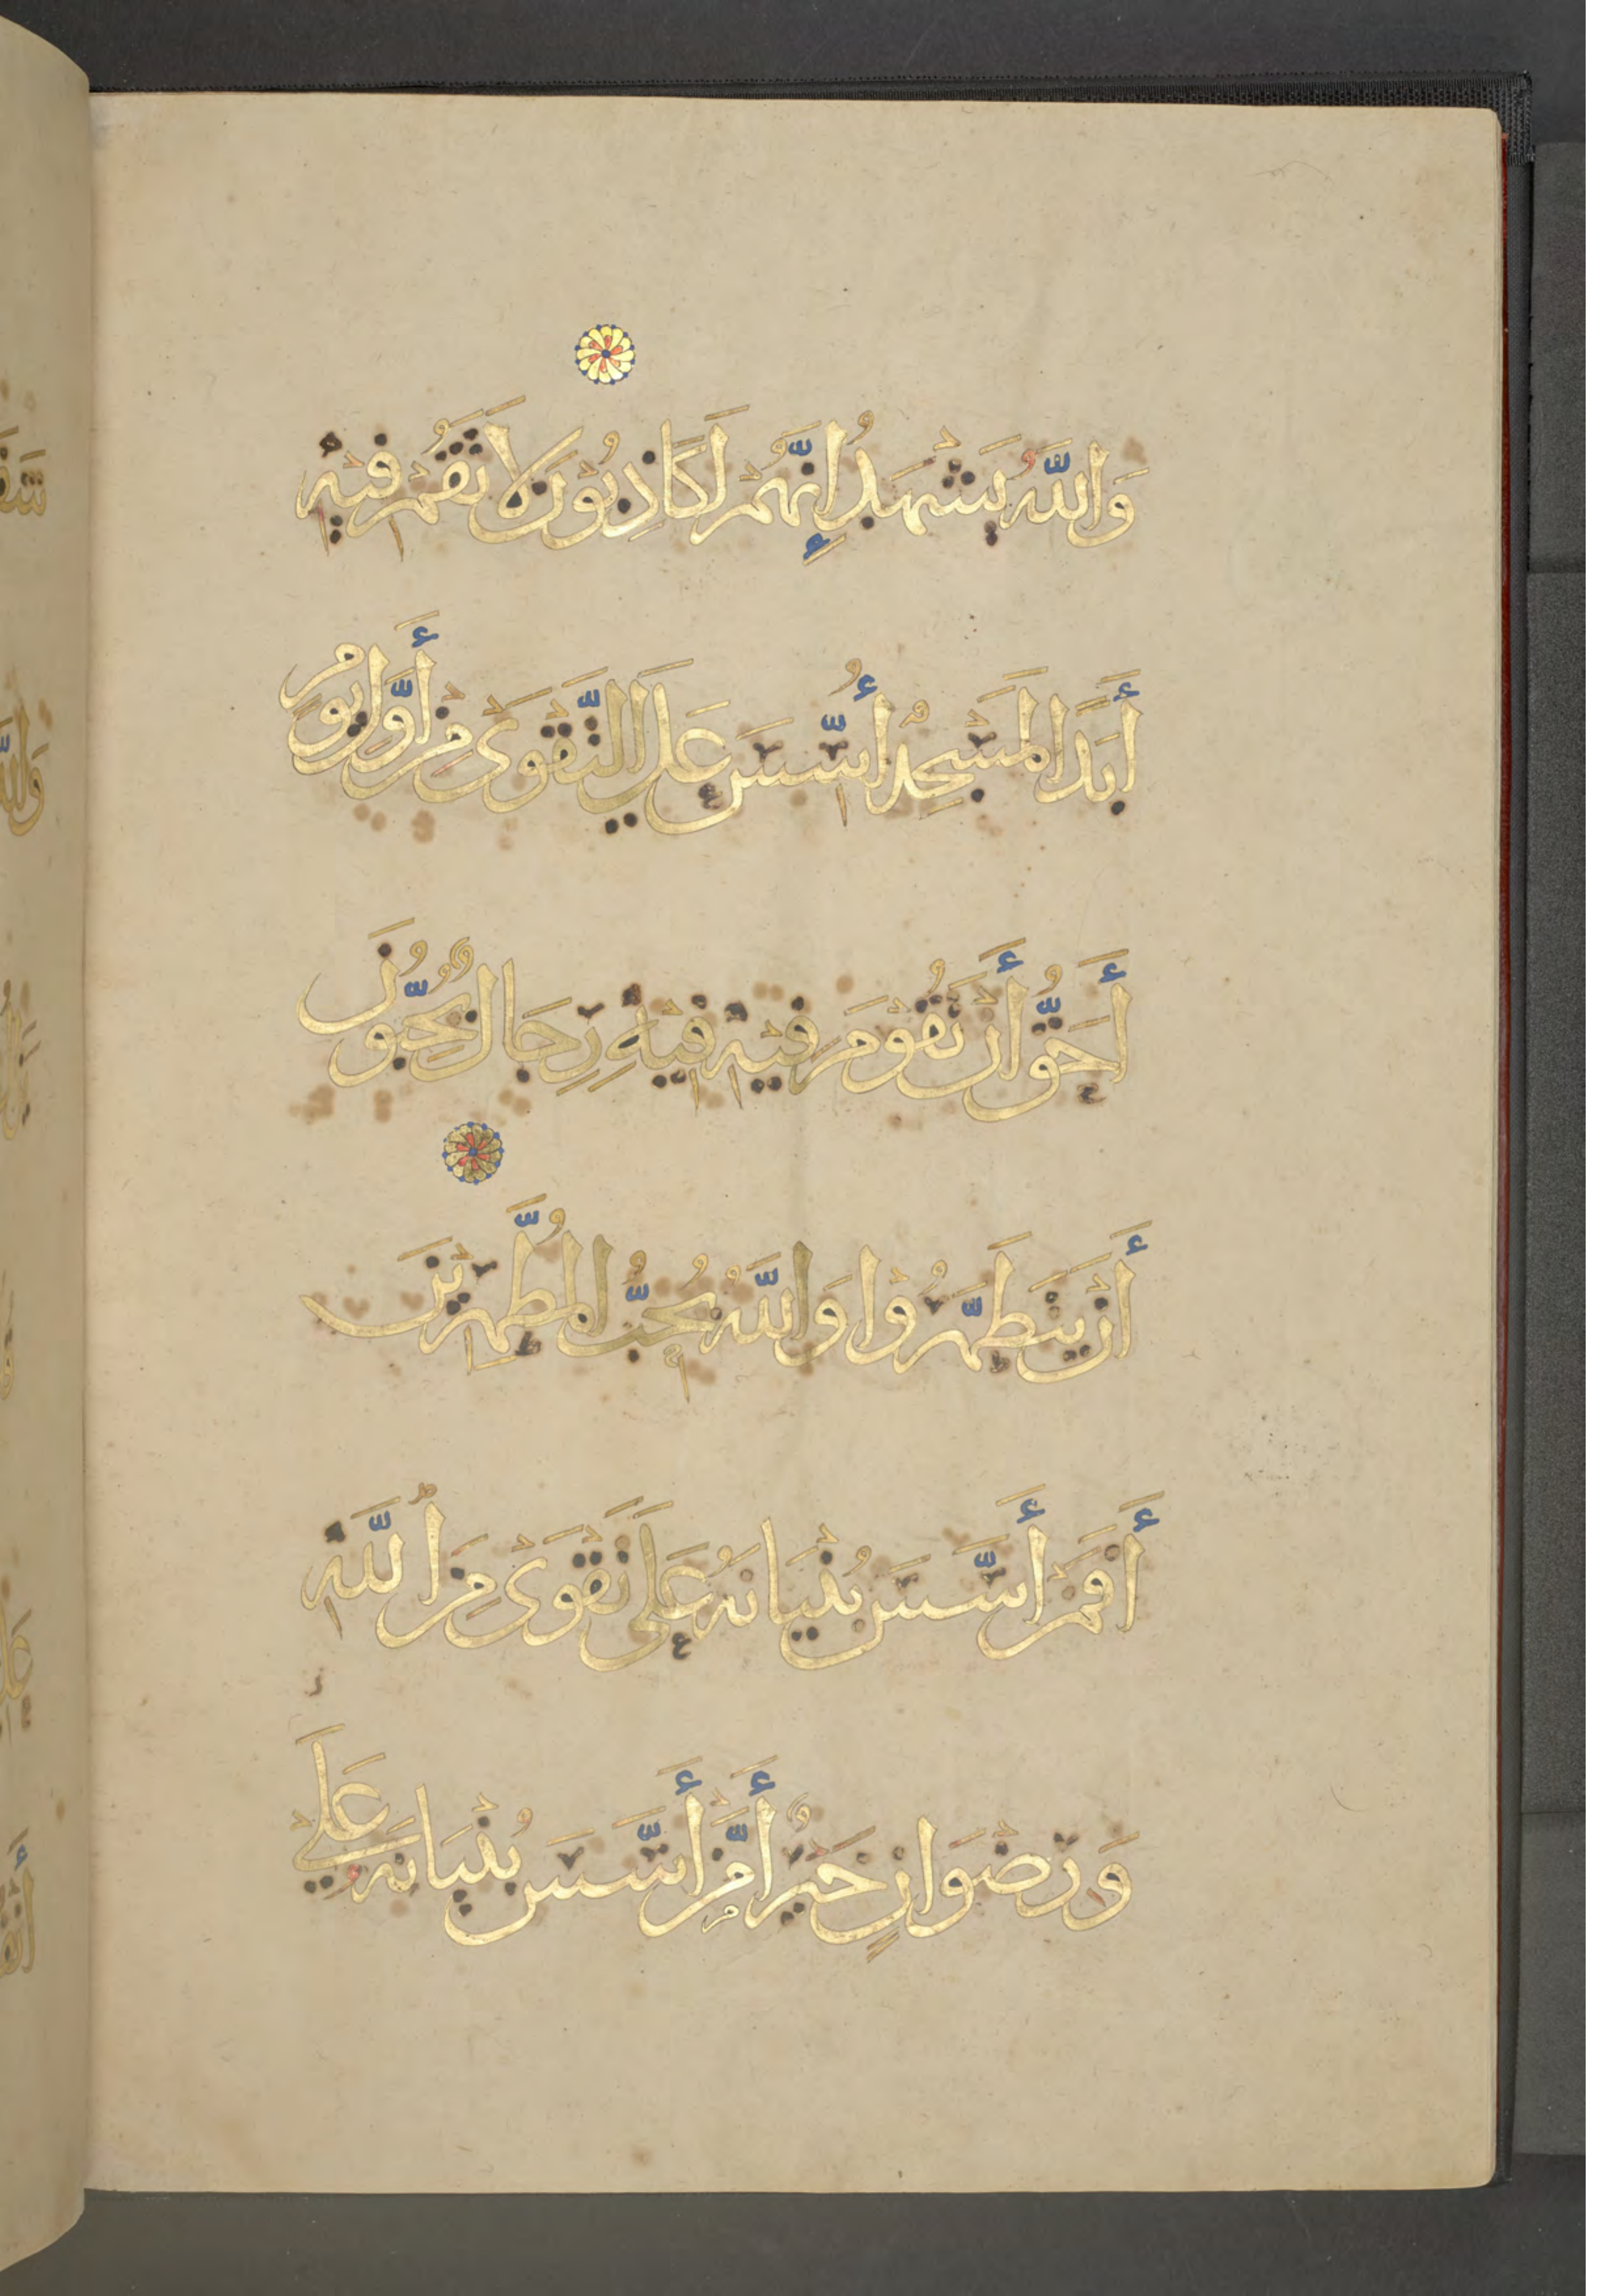 وَاللَّهُ يَشْهَدُ إِنَّهُمْ لَكَاذِبُونَ لَا تَقُمْ فِيهِ
أَبَدًا لَمَسْجِدٌ أُسِّسَ عَلَى التَّقْوَىٰ مِنْ أَوَّلِ يَوْمٍ
أَحَقُّ أَنْ تَقُومَ فِيهِ فِيهِ رِجَالٌ يُحِبُّونَ
أَنْ يَتَطَهَّرُوا وَاللَّهُ يُحِبُّ الْمُطَّهِّرِينَ
أَفَمَنْ أَسَّسَ بُنْيَانَهُ عَلَى تَقْوَى مِنَ اللَّهِ
وَرِضْوَانٍ خَيْرٌ أَمْ مَنْ أَسَّسَ بُنْيَانَهُ عَلَى